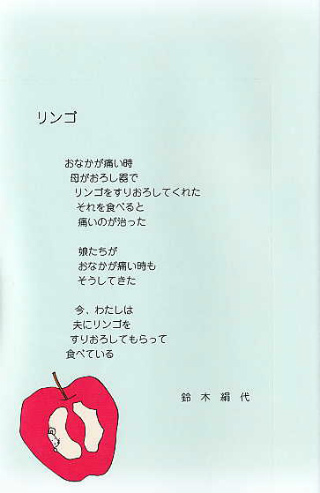 リンゴ
おなかが痛い時
母がおろし器で
リンゴをすりおろしてくれた
それを食べると
痛いのが治った
娘たちが
おなかが痛い時も
そうしてきた
今、わたしは
夫にリンゴを
すりおろしてもらって
食べている
鈴木絹代